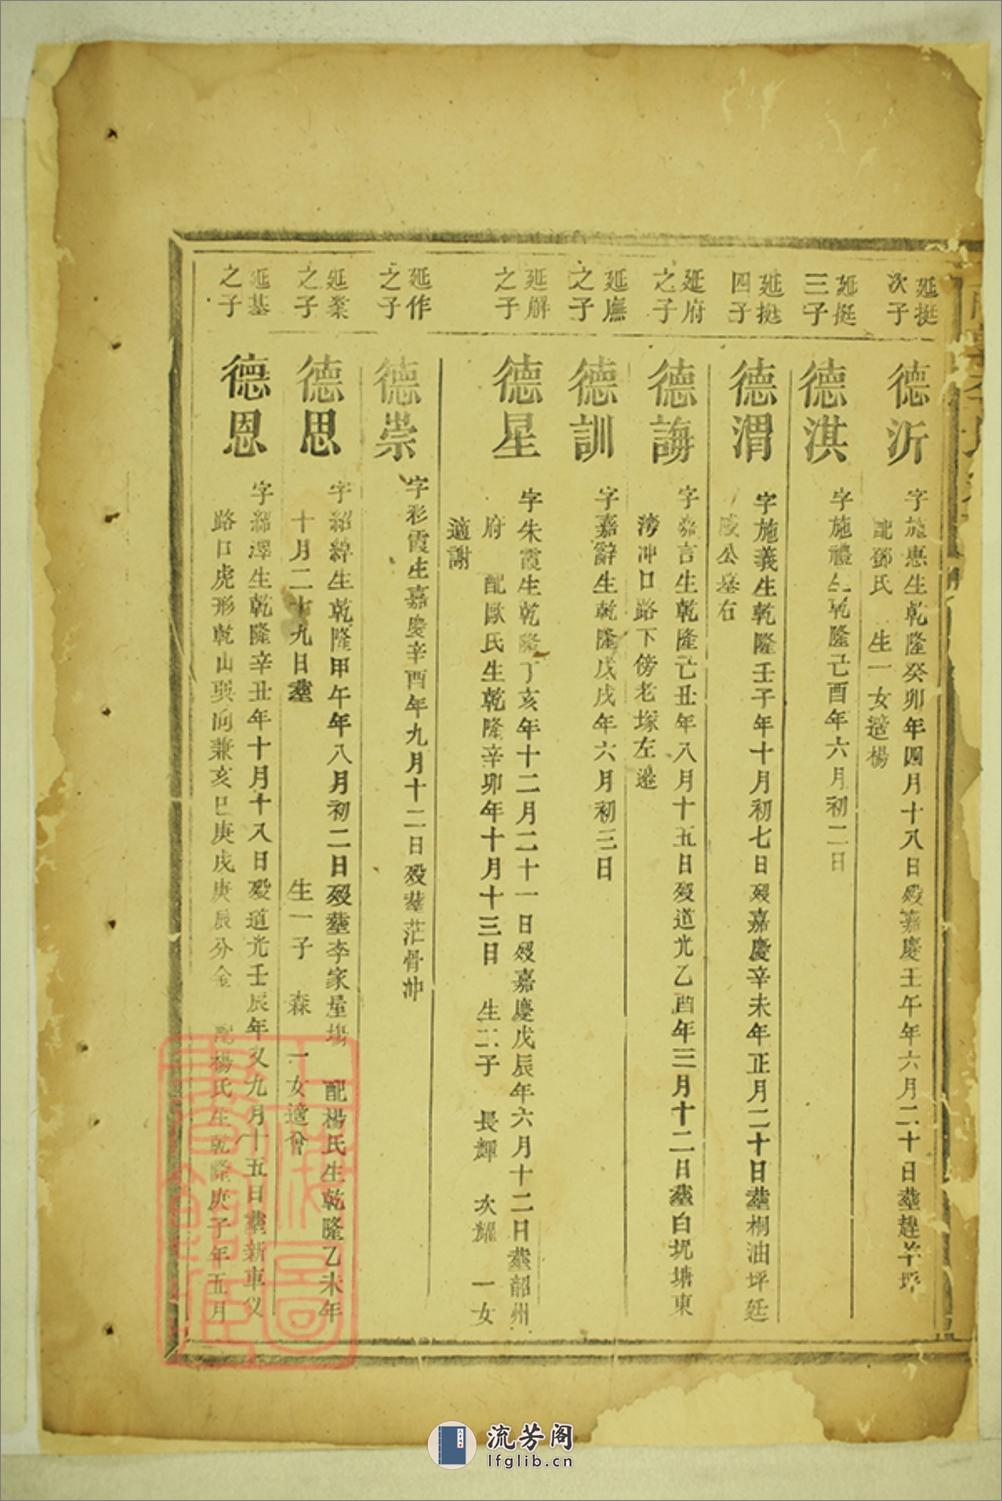 延挺
次子
德沂
字施惠生乾隆癸卯年四月十八日殁嘉慶壬午年六月二十日塟趕羊坪
配鄧氏 生一女適楊
延挺
三子
德淇
字施禮生乾隆己酉年六月初二日
延挺
四子
德渭
字施義生乾隆壬子年十月初七日殁嘉慶辛未年正月二十日塟桐油坪廷
公墓右
延府
之子
德誨
字嘉言生乾隆己丑年八月十五日殁道光乙酉年三月十二日塟白坭塘東
沖口路下傍老塚左邊
延廡
之子
德訓
字嘉辭生乾隆戊戌年六月初三日
延解
之子
德星
字朱霞生乾隆丁亥年十二月二十一日殁嘉慶戊辰年六月十二日塟韶州
府 配歐氏生乾隆辛卯年十月十三日 生二子 長輝 次耀 一女
適謝
延作
之子
德崇
字彩霞生嘉慶辛酉年九月十二日殁塟茫骨沖
延業
之子
德思
字紹緯生乾隆甲午年八月初二日殁塟李家屋場 配楊氏生乾隆乙未年
十月二十九日塟 生一子 森 一女適曾
延基
之子
德恩
字紹澤生乾隆辛丑年十月十八日殁道光壬辰年又九月十五日塟新車仪
路口虎形乾山巽向兼亥巳庚戌庚辰分金 配楊氏生乾隆庚子年五月
流芳阁
lfglib.cn